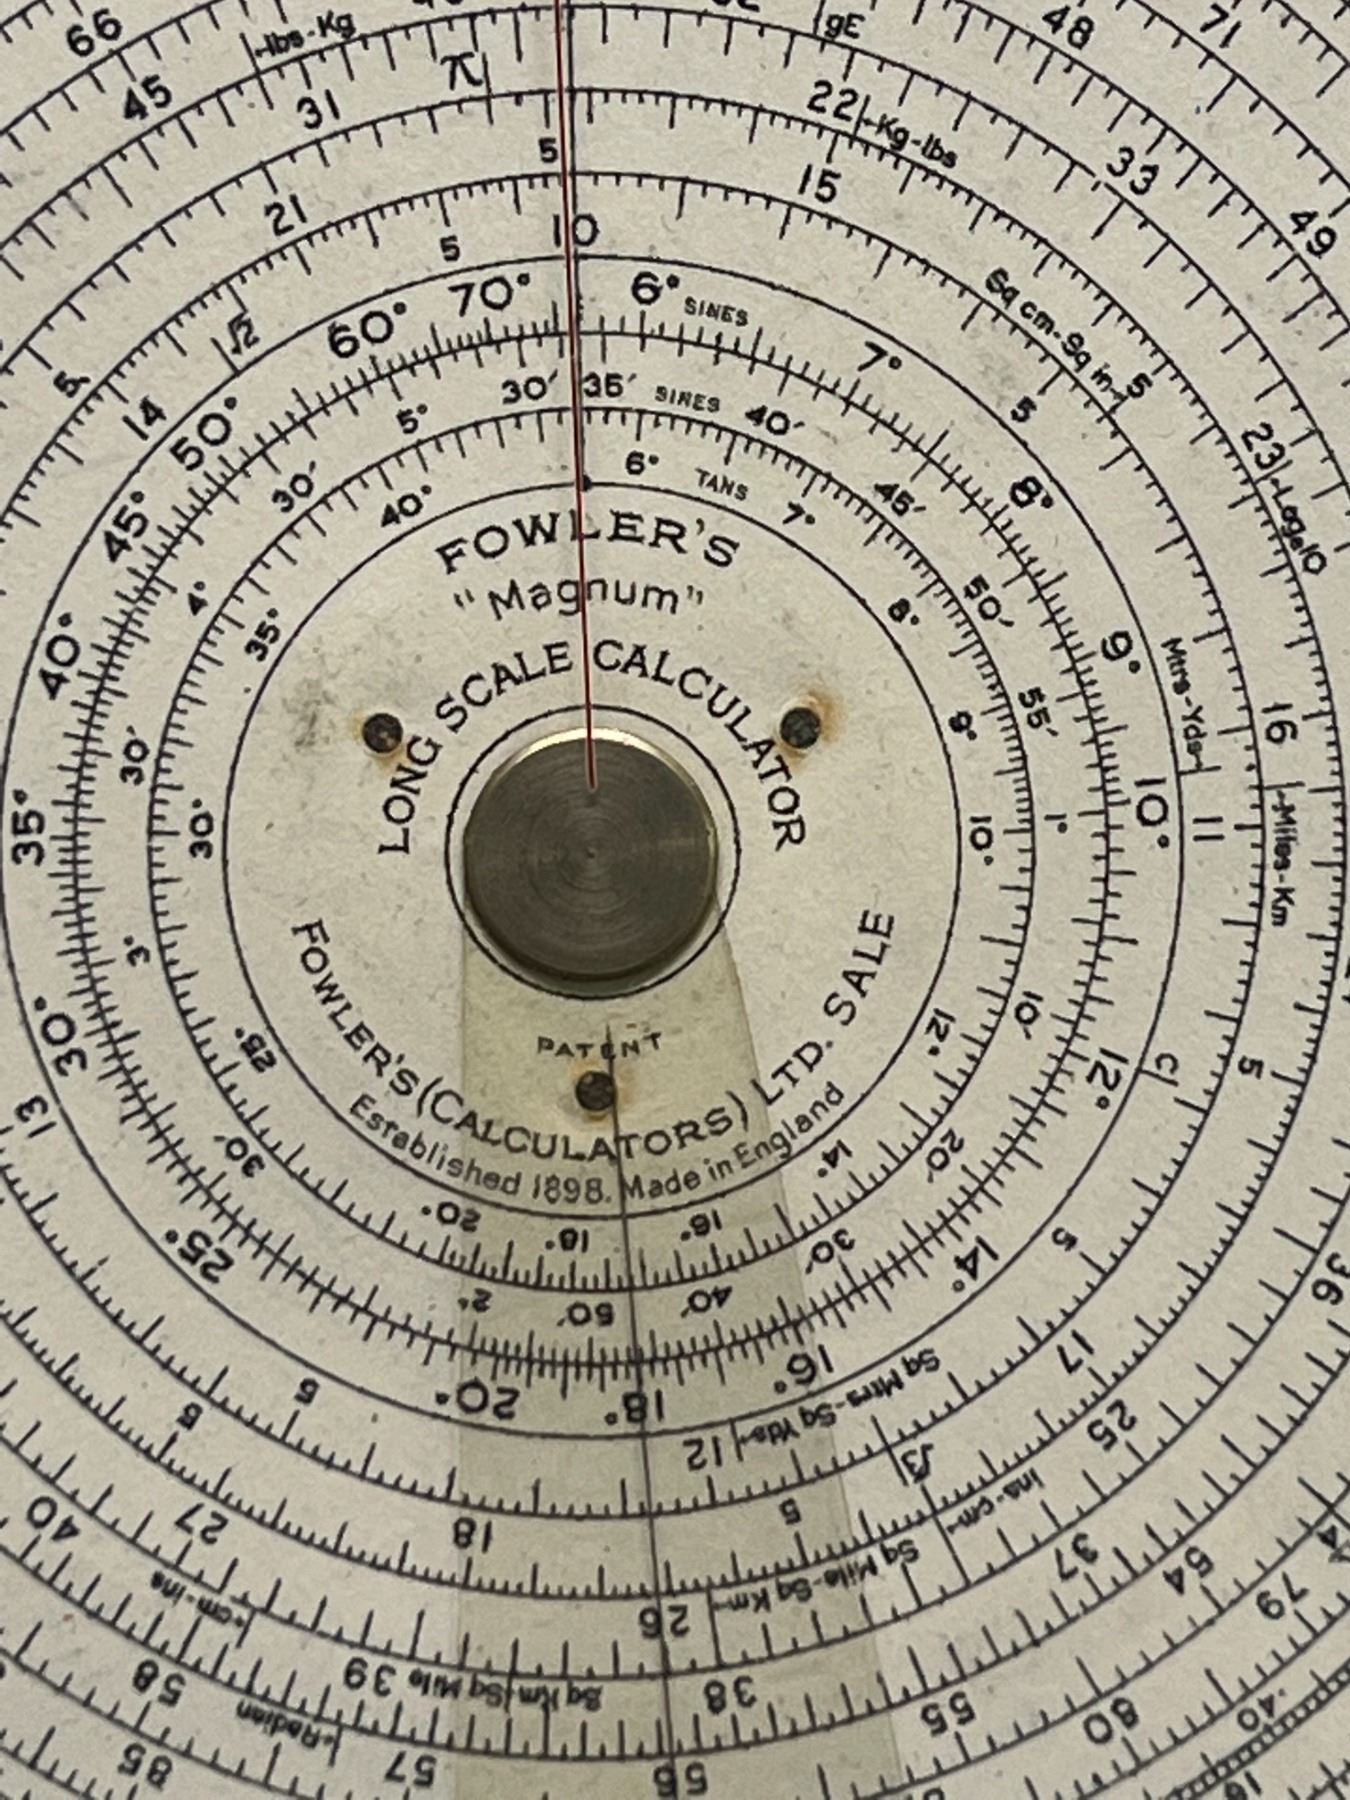 66
45
lbs-Kg
31
π
gE
48
71
22
Kg-lbs
33
49
5
15
21
5
10
√2
5
14
Sq cm-Sq in
5
5
23
Loge10
60°
70°
6°
SINES
7°
50°
8°
45°
9°
40°
10°
35°
12°
30°
14°
25°
16°
20°
18°
30′
35′
SINES
40′
5°
45′
30′
50′
4°
55′
30′
1°
3°
10′
30′
20′
2°
50′
40′
30′
6°
TANS
7°
40°
8°
35°
9°
30°
10°
25°
12°
20°
18°
16°
14°
FOWLER'S
"Magnum"
LONG SCALE CALCULATOR
PATENT
FOWLER'S (CALCULATORS) LTD. SALE
Established 1898. Made in England
Mtrs-Yds
16
11
Miles-Km
C
5
5
13
36
17
Sq Mtrs-Sq Yds
12
5
5
25
√3
ins-cm
5
18
27
40
37
54
79
Sq Mile-Sq Km
26
cm-ins
39
Sq Km-Sq Mile
38
58
55
80
40
Radian
85
57
56